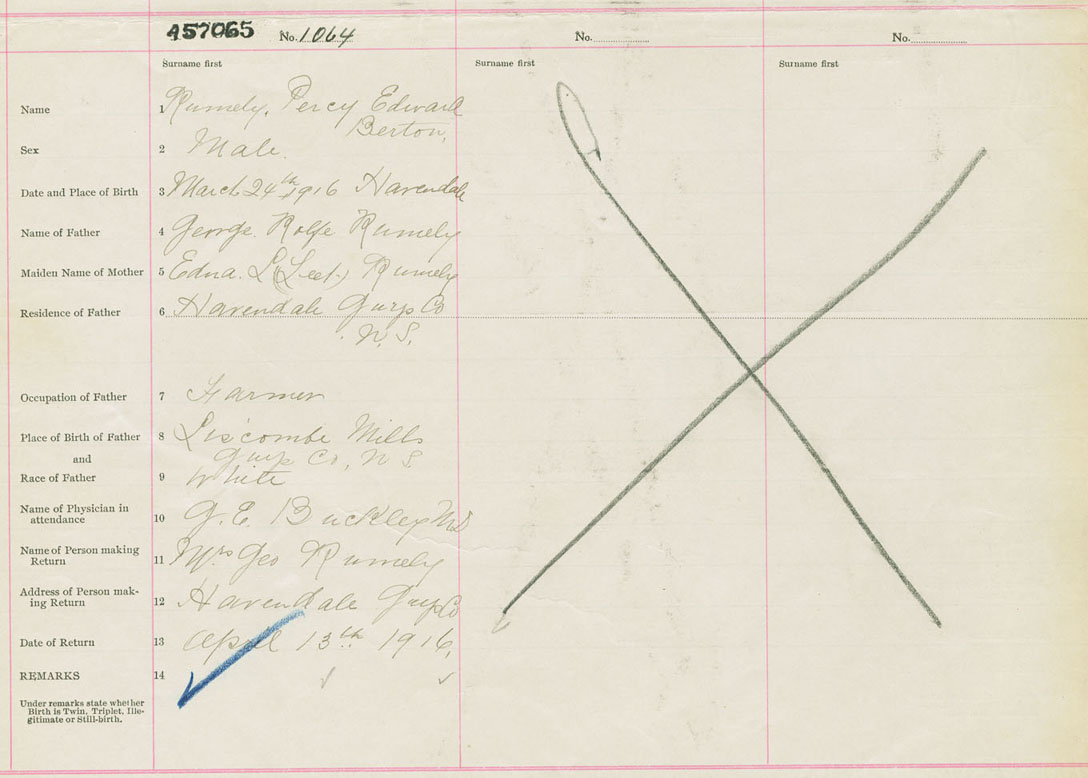 A57065 No. 1064 No. No.
Surname first Surname first Surname first
Name 1 Rumely, Percy Edward
Berton,
Sex 2 Male.
Date and Place of Birth 3 March 24th 1916 Havendale
Name of Father 4 George Rolfe Rumely
Maiden Name of Mother 5 Edna. L (Leet) Rumely
Residence of Father 6 Havendale Guys Co
N. S.
Occupation of Father 7 Farmer
Place of Birth of Father 8 Liscombe Mills
and Guys Co, N S
Race of Father 9 White
Name of Physician in
attendance 10 G. E. Buckley MD
Name of Person making
Return 11 Mrs Geo Rumely
Address of Person mak-
ing Return 12 Havendale Guys Co
Date of Return 13 April 13th 1916,
REMARKS 14
Under remarks state whether
Birth is Twin, Triplet, Ille-
gitimate or Still-birth.